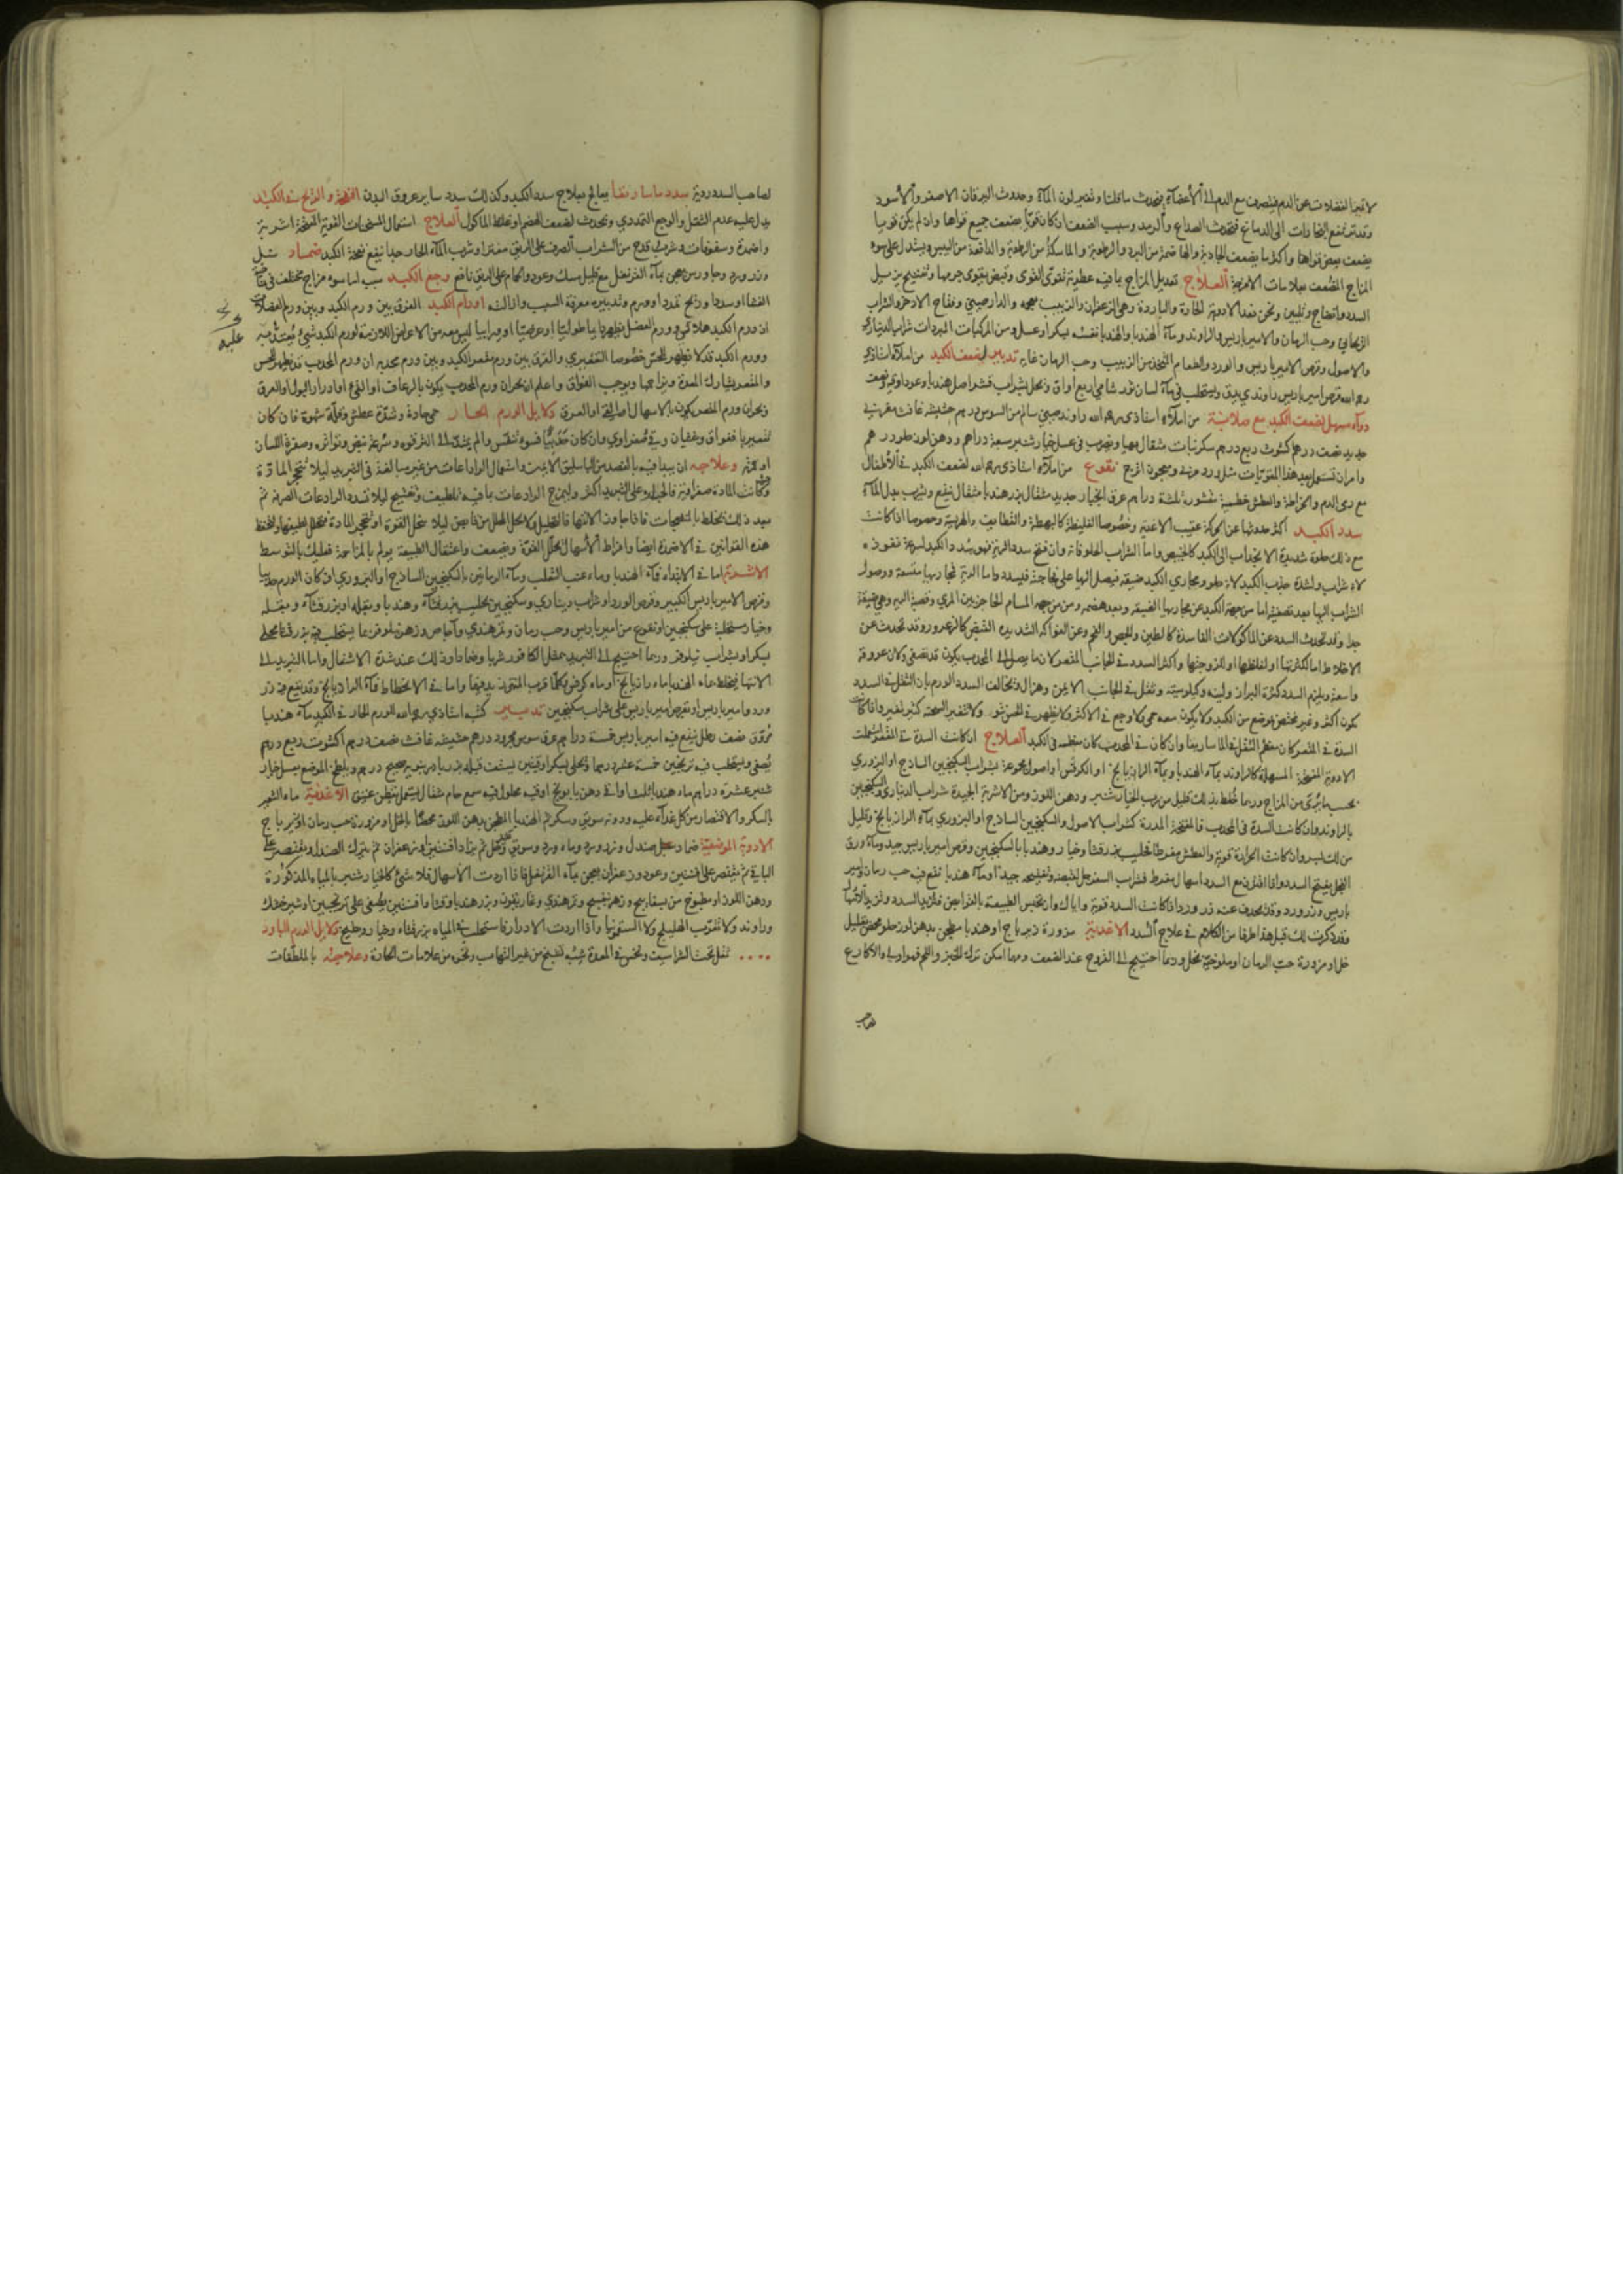 لا تميز الفضلات عن الدم فينصرف مع الدم الى الأعضاء فيحدث ما قلنا وتغير لون الماء وحدوث اليرقان الاصفر والأسود
وقد ترتفع البخارات الى الدماغ فيحدث الصداع والرمد وسبب الضعف ان كان قويا ضعفت جميع قواها وان لم يكن قويا
يضعف بعض قواها واكثر ما يضعف الجاذبة والهاضمة من البرد والرطوبة والماسكة من الرطوبة والدافعة من اليبس ويستدل على سوء
المزاج المضعف بعلامات الامزجة العلاج تعديل المزاج بما فيه عطرية تقوي القوى وقبض يقوي جرمها وتفتيح يزيل
السدد وانضاج وتليين ونحن نعد الادوية الحارة والباردة وهي الزعفران والزبيب بعجمه والدارصيني وفقاح الاذخر والشراب
الريحاني وحب الرمان والامبرباريس والراوند وماء الهندبا والهندبا نفسه بسكر او عسل ومن المركبات المبردات شراب الديناري
والاصول وقرص الامبرباريس والورد والطعام المتخذ من الزبيب وحب الرمان غاية تدبير لضعف الكبد من املاء استاذي
رحمه الله قرص امبرباريس راوندي يدق ويستحلب في ماء لسان ثور شامي اربع اواق ويحلى بشراب قشر اصل هندبا
دواء مسهل لضعف الكبد مع صلابة من املاء استاذي رحمه الله راوند صيني سالم من السوس درهم حشيشة غافث
جديد نصف درهم كشوت ربع درهم سكر نبات مثقال بهما ويضرب في عسل خيار شنبر سبعة دراهم ودهن لوز حلو درهم
نقوع من املاء استاذي رحمه الله لضعف الكبد في الأطفال
مع رمي الدم والخراطة والعطش
سدد الكبد اكثر حدوثها عن الحركة عقيب الاغذية وخصوصا الغليظة كالبهطة والقطايف والهريسة وخصوصا اذا كانت
مع ذلك حلوة شديدة الانجذاب الى الكبد كالخبيص واما الشراب الحلو فانه وان فتح سدد الرية فهو يسدد الكبد لسرعة نفوذه
لانه شراب ولشدة جذب الكبد لانه حلو ومجاري الكبد ضيقة فيصل اليها على فجاجته فيسدد واما الرية فمجاريها متسعة ووصول
الشراب اليها بعد تصفيته اما من جهة الكبد عن مجاريها الضيقة وبعد هضمه ومن من جهة المسام الحاجز بين المري وقصبة الرية وهي ضيقة
جدا وقد تحدث السدد عن الماكولات الفاسدة كالطين والجص والفحم وعن الفواكه الشديدة القبض كالزعرور وقد تحدث عن
الاخلاط اما لكثرتها او لغلظها او للزوجتها واكثر السدد في الجانب المقعر لان ما يصل الى المحدب يكون قد تصفى ولان عروقه
واسعة ويلزم السدد كثرة البراز ولينه وكيلوسيته وثقل في الجانب الايمن وهزال وتخالف السدد الورم بان الثقل في السدد
يكون اكثر وغير مختص بموضع من الكبد ولا يكون معه حمى ولا وجع في الاكثر ولا يظهر في الحس نتو ولا تتغير السحنة كثير تغير واذا كانت
السدة في المقعر كان معظم الثقل في الماساريقا وان كان في المحدب كان معظمه في الكبد العلاج ان كانت السدة في المقعر استعملت
الادوية المفتحة المسهلة كالراوند بماء الهندبا وبماء الرازيانج او الكرفس او اصول مجموعة بشراب السكنجبين الساذج او البزوري
بحسب ما يرى من المزاج وربما خلط بذلك قليل من رب الخيار شنبر ودهن اللوز ومن الاشربة الجيدة شراب الديناري والسكنجبين
بالراوند وان كانت السدة في المحدب فالمفتحة المدرة كشراب الاصول والسكنجبين الساذج او البزوري بماء الرازيانج وقليل
وان كانت الحرارة قوية والعطش مفرطا فحليب بزر قثا وخيار وهندبا بالسكنجبين وقرص امبرباريس جيد وماء ورق
الفجل يفتح السدد واذا اقترن مع السدد اسهال مفرط فشراب السفرجل لقبضه وتفتيحه جيد او ماء هندبا نقع فيه حب رمان وامبر
باريس وزرورد اذا كانت السدد قوية واياك وان تحبس الطبيعة بالقوابض فتزيد السدد
وقد ذكرت لك قبل هذا طرفا من الكلام في علاج السدد الاغذية مزورة زيرباج او هندبا مطجن بدهن لوز حلو محمض بقليل
خل او مزورة حب الرمان او ملوخية بخل وربما احتيج الى الفروج عند الضعف ومهما امكن ترك الخبز واللحم فهو اولى والاكارع
لصاحب
لصاحب السدد ردية سدد ماساريقا يعالج بعلاج سدد الكبد وكذلك سدد ساير عروق البدن النفخة والريح في الكبد
يدل عليه عدم الثقل والوجع التمددي وتحدث لضعف الهضم او غلظ الماكول العلاج استعمال المسخنات القوية المفتحة اشربة
واضمدة وسفوفات وشرب قدح من الشراب الصرف على الريق مفترا وشرب الماء الحار جدا ينفع نفخة الكبد ضماد سنبل
وزرورد وجاورس يعجن بماء القرنفل مع قليل مسك وعود والحمام على الريق نافع وجع الكبد سببه اما سوء مزاج مختلف في
الغشا او سدد او ريح تمدد او ورم وتدبيره معرفة السبب وازالته اورام الكبد الفرق بين ورم الكبد وبين ورم العضلات
ان ورم الكبد هلالي وورم العضل يظهر اما طوليا او عرضيا او ورابيا ليس معه من الاعراض اللازمة لورم الكبد شيء يعتد به
وورم الكبد قد لا يظهر للحس خصوصا التقعيري والفرق بين ورم مقعر الكبد وبين ورم محدبه ان ورم المحدب قد يظهر للحس
والمقعر يشارك المعدة ويزاحمها ويوجب الفواق واعلم ان بحران ورم المحدب يكون بالرعاف او القيء او ادرار البول او العرق
وبحران ورم المقعر يكون بالاسهال او القيء او العرق دلايل الورم الحار حمى حادة وشدة عطش وقلة شهوة فان كان
تقعيريا ففواق وغثيان وقيء صفراوي وان كان حدبيا فسوء تنفس والم يمتد الى الترقوة وسرعة نبض وتواتره وصفرة اللسان
او حمرته وعلاجه ان يبدا فيه بالفصد من الباسليق الايمن واستعمال الرادعات من غير مبالغة في التبريد ليلا تتحجر المادة
وان كانت المادة صفراوية فالجراءة على التبريد اكثر وليمزج الرادعات بما فيه تلطيف وتفتيح ليلا تسدد الرادعات الصرفة ثم
بعد ذلك يخلط بالمنضجات فاذا جاوزت الانتها فالتحليل ولا يخل المحلل من قابض ليلا تنحل القوة او تتحجر المادة
هذه القوانين في الاضمدة ايضا وافراط الاسهال يحلل القوة ويضعف واعتقال الطبيعة يولم بالمزاحمة فعليك بالتوسط
الاشربة اما في الابتداء فماء الهندبا وماء عنب الثعلب وماء الرمانين بالسكنجبين الساذج او البزوري ان كان الورم حدبيا
وقرص الامبرباريس الكبير وقرص الورد او شراب ديناري وسكنجبين بحليب بزر قثاء وهندبا وبقلة
وخيار مستحلبة على سكنجبين او نقوع من امبرباريس وحب رمان وتمر هندي واجاص وزهر نيلوفر
بسكر او بشراب نيلوفر وربما احتيج الى التبريد بمثل الكافور شربا وضمادا وذلك عند شدة الاشتعال واما القريب الى
الانتها فيخلط بماء الهندبا ماء رازيانج او ماء كرفس واما في الانحطاط فماء الرازيانج وقد ينقع فيه زر
ورد وامبرباريس او بقرص امبرباريس على شراب سكنجبين تدبير كتبه استاذي رحمه الله للورم الحار في الكبد ماء هندبا
مروق نصف رطل ينقع فيه امبرباريس خمسة دراهم عرق سوس مجرود درهم حشيشة غافث نصف درهم اكشوث ربع درهم
يصفى ويستحلب فيه ترنجبين خمسة عشر درهما ويحلى بسكر اوقيتين
شنبر عشرة دراهم ماء هندبا ثلاث اواق دهن بابونج اوقية
الاغذية ماء الشعير
بالسكر والاقتصار من كل غذاء عليه ودونه سويق وسكر ثم الهندبا المطجن بدهن اللوز محمضا بالخل او مزورة حب رمان او زيرباج
الادوية الموضعية ضماد صندل وزرورد وماء ورد وسويق وخل ثم يزاد افسنتين وزعفران ثم يترك الصندل ويقتصر على
الباقي ثم يقتصر على افسنتين وعود وزعفران يعجن بماء القرنفل فاذا اردت الاسهال فلا شيء كالخيار شنبر بالمياه المذكورة
ودهن اللوز او مطبوخ من بسفايج وزهر بنفسج وتمرهندي وغاريقون وبزر هندبا وقثا وافسنتين يصفى على ترنجبين او شيرخشك
وراوند ولا تقرب الهليلج ولا السقمونيا واذا اردت الادرار فاستحلب في المياه بزر قثاء وخيار وبطيخ دلايل الورم البارد
ثقل تحت الشراسيف علامات الحارة وعلاجه بالملطفات